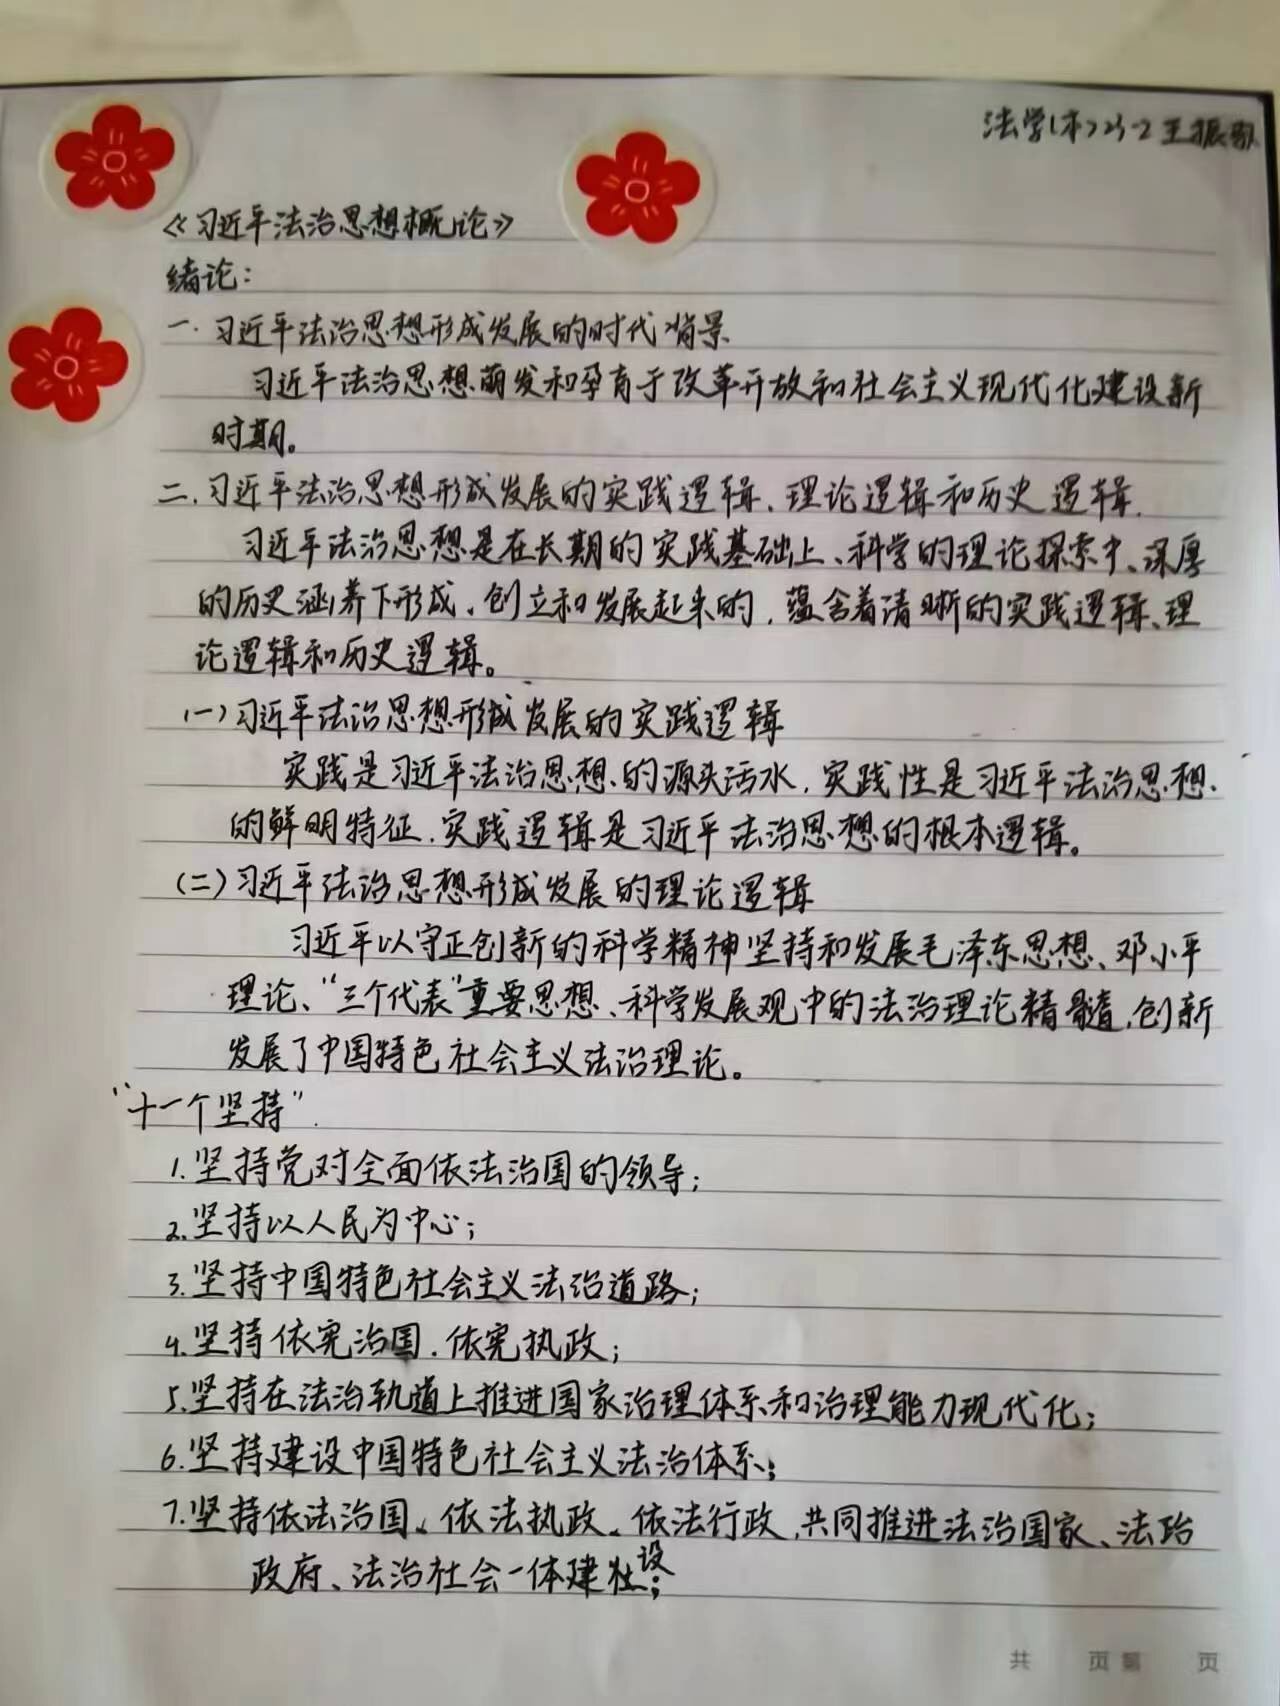 法学(本)23-2 王振
《习近平法治思想概论》
绪论:
一.习近平法治思想形成发展的时代背景
习近平法治思想萌发和孕育于改革开放和社会主义现代化建设新
时期。
二.习近平法治思想形成发展的实践逻辑、理论逻辑和历史逻辑.
习近平法治思想是在长期的实践基础上、科学的理论探索中、深厚
的历史涵养下形成、创立和发展起来的,蕴含着清晰的实践逻辑、理
论逻辑和历史逻辑。
(一)习近平法治思想形成发展的实践逻辑
实践是习近平法治思想的源头活水,实践性是习近平法治思想
的鲜明特征,实践逻辑是习近平法治思想的根本逻辑。
(二)习近平法治思想形成发展的理论逻辑
习近平以守正创新的科学精神坚持和发展毛泽东思想、邓小平
理论、“三个代表”重要思想、科学发展观中的法治理论精髓,创新
发展了中国特色社会主义法治理论。
“十一个坚持”.
1.坚持党对全面依法治国的领导;
2.坚持以人民为中心;
3.坚持中国特色社会主义法治道路;
4.坚持依宪治国、依宪执政;
5.坚持在法治轨道上推进国家治理体系和治理能力现代化;
6.坚持建设中国特色社会主义法治体系;
7.坚持依法治国、依法执政、依法行政,共同推进法治国家、法治
政府、法治社会一体建设;
共 页 第 页